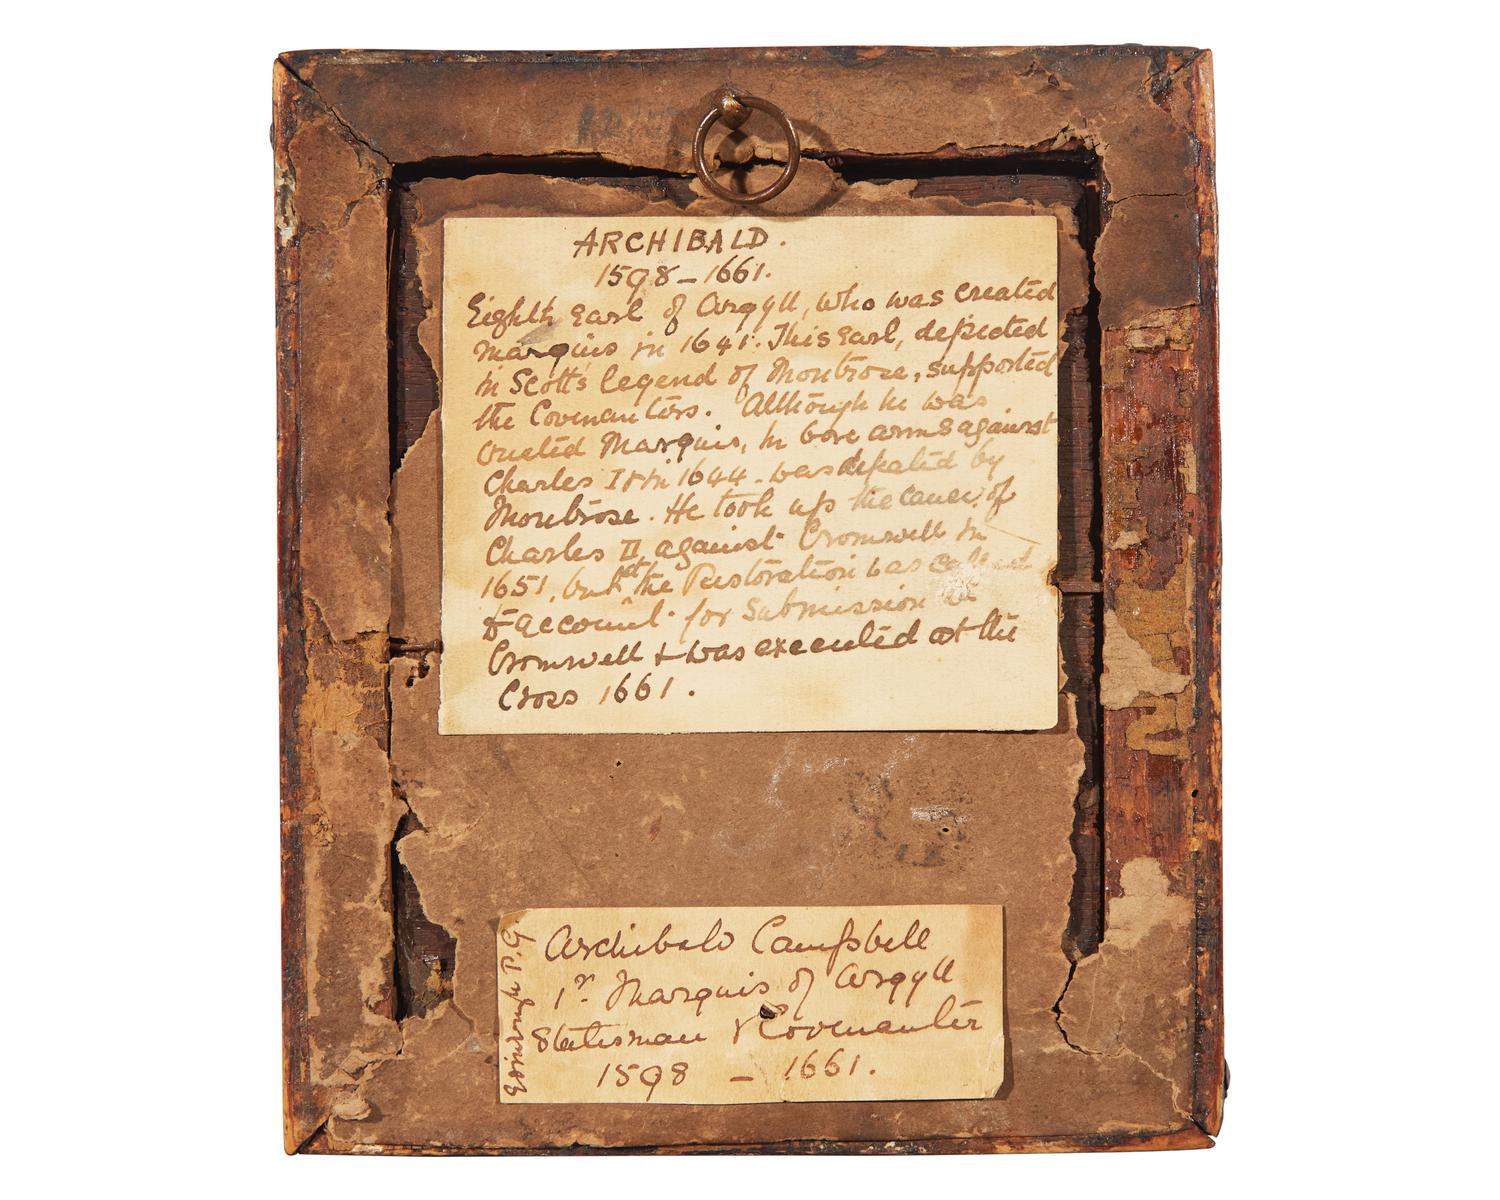 ARCHIBALD.
1598-1661.
Eighth Earl of Argyll, who was created
marquis in 1641. This Earl, depicted
in Scott's legend of Montrose, supported
the Covenanters. Although he was
created Marquis, he bore arms against
Charles I & in 1644 - was defeated by
Montrose. He took up the cause of
Charles II against Cromwell in
1651, but at the Restoration was called
to account for Submission to
Cromwell & was executed at the
Cross 1661.
Edinborough P.G.
Archibald Campbell
1r. Marquis of Argyll
Statesman & Covenanter
1598 - 1661.